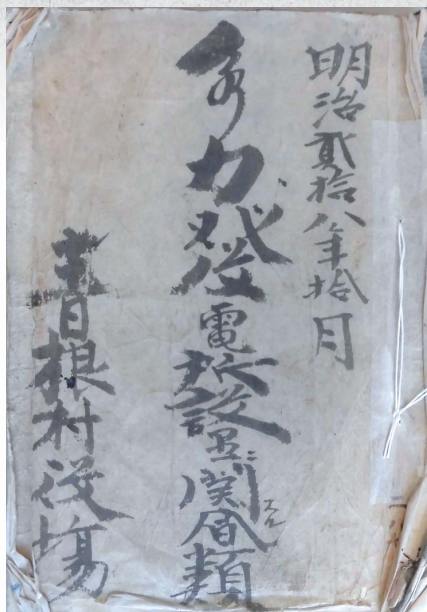 明治貳拾八年拾月
水力發電所設置ニ関スル書類
青根村役場